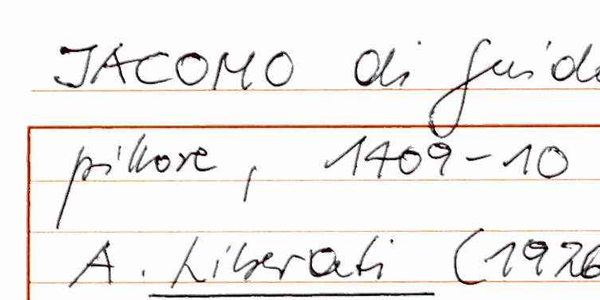 JACOMO di Guido
pittore, 1409-10
A. Liberati (1926